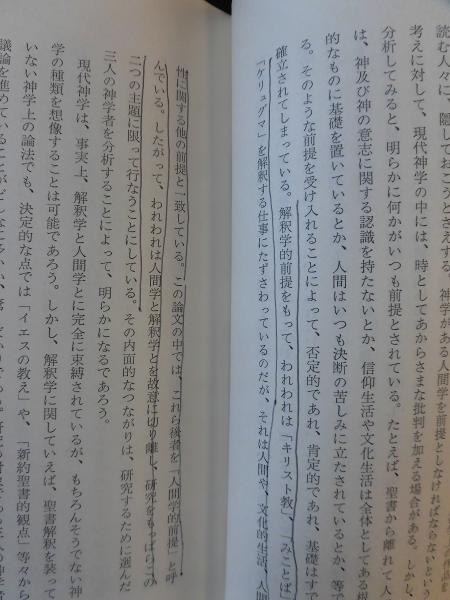 読む人々に、隠しておこうとさえする。神学がある人間学を前提としなければならないという
考えに対して、現代神学の中には、時としてあからさまな批判を加える場合がある。しかし、
分析してみると、明らかに何かがいつも前提とされている。たとえば、聖書から離れて人
は、神及び神の意志に関する認識を持たないとか、信仰生活や文化生活は全体としてある根
的なものに基礎を置いているとか、人間はいつも決断の苦しみに立たされているとか、等
る。そのような前提を受け入れることによって、否定的であれ、肯定的であれ、基礎はす
確立されてしまっている。解釈学的前提をもって、われわれは「キリスト教」、「みことば」
「ケリュグマ」を解釈する仕事にたずさわっているのだが、それは人間や、文化的生活、人間
性に関する他の前提と一致している。この論文の中では、これら後者を「人間学的前提」と呼
んでいる。したがって、われわれは人間学と解釈学とを故意に切り離し、研究をもっぱらこの
二つの主題に限って行なうことにしている。その内面的なつながりは、研究するために選んだ
三人の神学者を分析することによって、明らかになるであろう。
現代神学は、事実上、解釈学と人間学とに完全に束縛されているが、もちろんそうでない神
学の種類を想像することは可能であろう。しかし、解釈学に関していえば、聖書解釈を装って
いない神学上の論法でも、決定的な点では「イエスの教え」や、「新約聖書的観点」等々から
議論を進めていることが